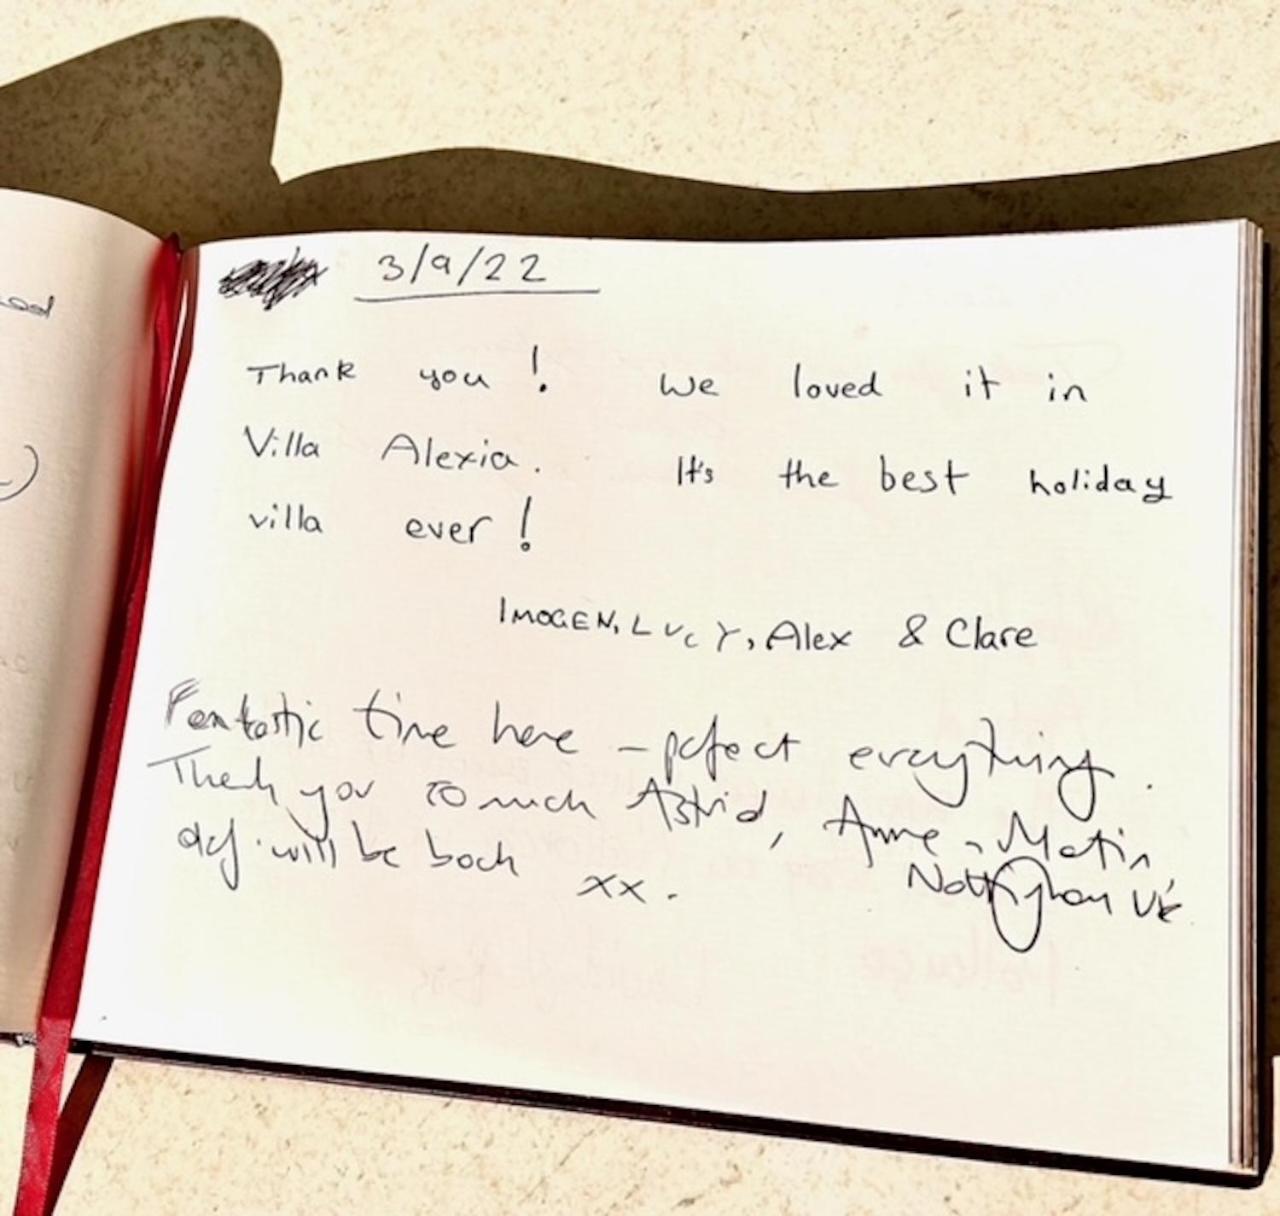 3/9/22
Thank you! We loved it in
Villa Alexia. It's the best holiday
villa ever!
IMOGEN, LUCY, Alex & Clare
Fantastic time here - pefect everything.
Thank you so much Astrid, Anne - Martin,
def. will be back xx.
Nottingham UK